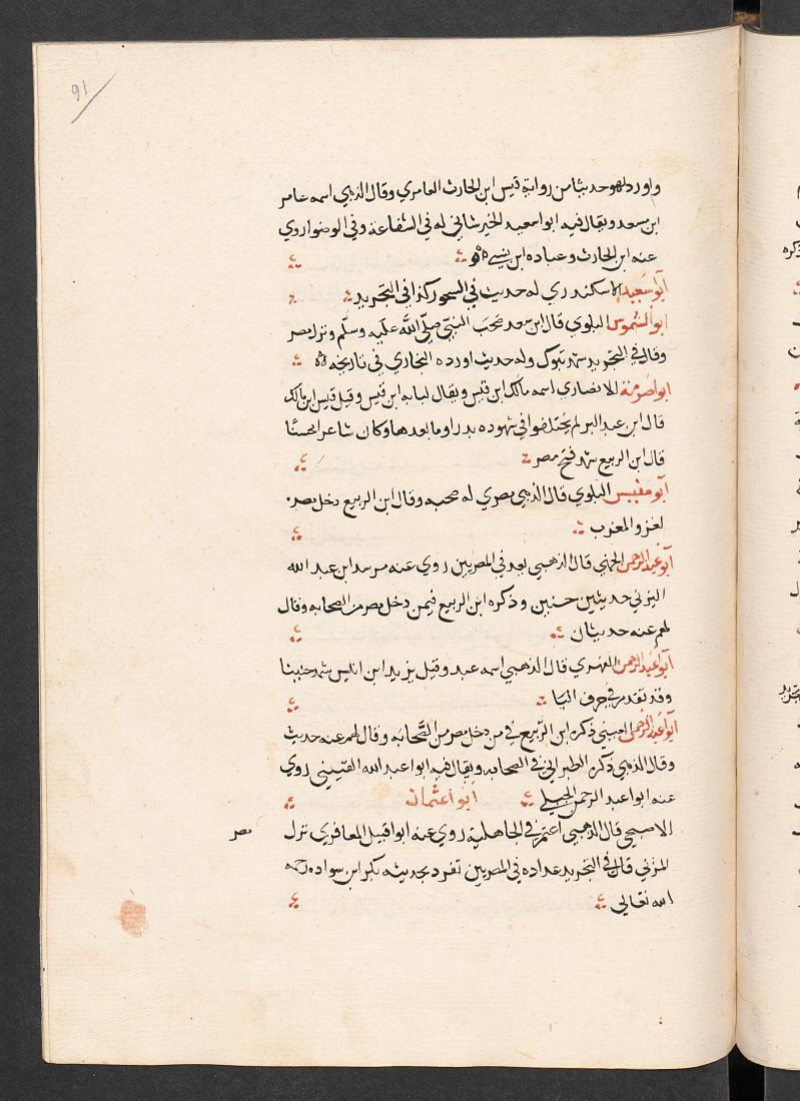 91
واورد له وحديثا من رواية قيس ابن الحارث العامري وقال الذهبي اسمه عامر
ابن سعد ويقال فيه ابوا سعيد الخير شاني له في الشفاعة وفي الوضوا روي
عنه ابن الحارث وعباده ابن نسي
أبوا سعيد الاسكندري له حديث في السحور كذا في التجريد
ابوا الشموس البلوي قال ابن سعد صحب النبي صلى الله عليه وسلم ونزل مصر
وقال في التجريد شهد تبوك وله حديث اورده البخاري في تاريخه
ابوا صرمة الانصاري اسمه مالك ابن قيس ويقال لبابه ابن قيس وقيل قيس ابن مالك
قال ابن عبد البر لم يختلفوا في شهوده بدرا وما بعدها وكان شاعرا محسنا
قال ابن الربيع شهد فتح مصر
أبو مقيس البلوي قال الذهبي مصري له صحبه وقال ابن الربيع دخل مصر
لغزو المغرب
أبو عبد الرحمن الجهني قال الذهبي يعد في المصريين روي عنه مرسد ابن عبد الله
اليزني حديثين حسنين وذكره ابن الربيع فيمن دخل مصر من الصحابه وقال
لهم عنه حديثان
أبوا عبد الرحمن الفهري قال الذهبي اسمه عبد وقيل يزيد ابن انيس شهد حنينا
وقد تقدم في حرف اليا
أبوا عبد الرحمن القيني ذكره ابن الربيع في من دخل مصر من الصحابه وقال لهم عنه حديث
وقال الذهبي ذكره الطبراني في الصحابه ويقال فيه ابوا عبد الله القيني روي
عنه ابوا عبد الرحمن الحبلي أبوا عثمان
الاصبحي قال الذهبي اعتمر في الجاهلية روي عنه ابوا قبيل المعافري نزل مصر
المزني قال في التجريد عداده في المصريين تفرد بحديثه بكر ابن سواده رحمه
الله تعالى